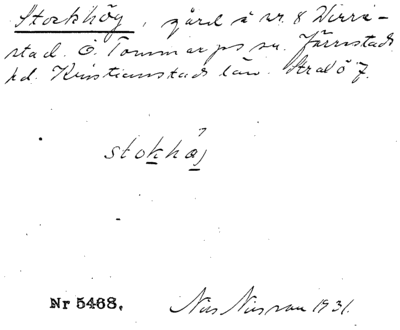 Stockhög, gård å nr. 8 Virri-
stad. Ö. Tommarps sn. Järrestads
hd. Kristianstads län. Stradö 7.
stokhøj
Nr 5468. Nils Nilsson 1931.